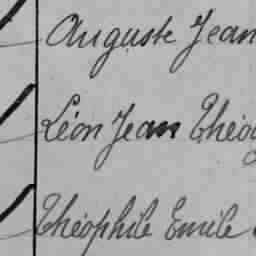 Auguste Jean
Léon Jean Théo
Théophile Emile